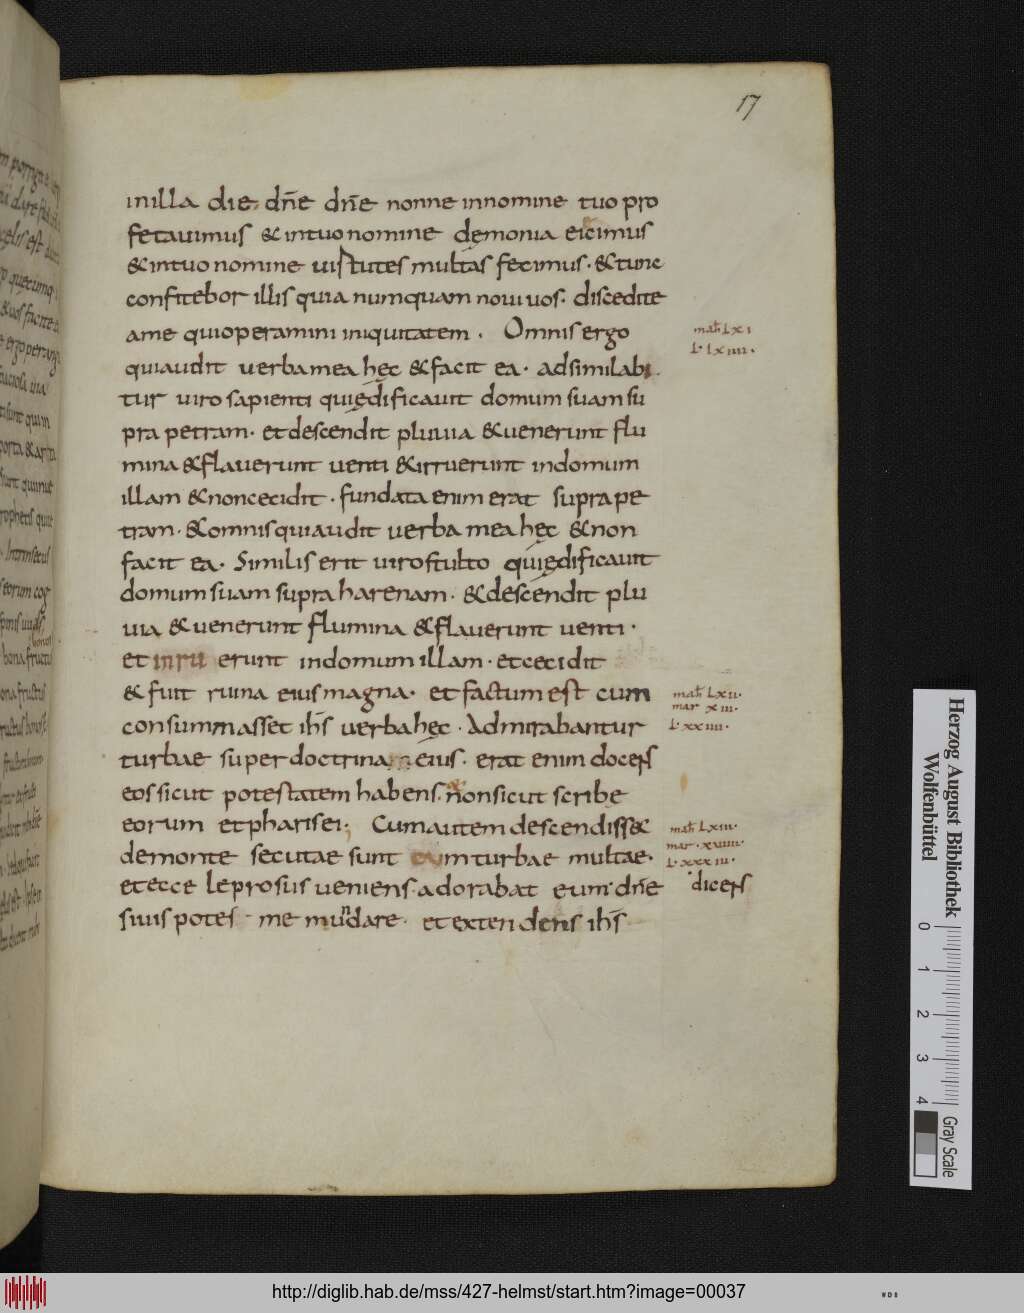 17
inilla die. dn̄e dn̄e nonne innomine tuo pro
fetauimus & intuo nomine demonia eicimus
& intuo nomine uirtutes multas fecimus. & tunc
confitebor illis quia numquam noui uos. discedite
ame quioperamini iniquitatem. Omnis ergo
math̄ Lxi
L. Lxiiii.
quiaudit uerba mea hęc & facit ea. adsimilabi
tur uiro sapienti quiędificauit domum suam su
pra petram. et descendit pluuia & uenerunt flu
mina & flauerunt uenti & irruerunt indomum
illam & non cecidit. fundata enim erat supra pe
tram. & omnis quiaudit uerba mea hęc & non
facit ea. Similis erit uiro stulto quiędificauit
domum suam supra harenam. & descendit plu
uia & uenerunt flumina & flauerunt uenti.
et inru erunt indomum illam. et cecidit
& fuit ruina eius magna. et factum est cum
math̄ Lxii.
mar xiii.
L. xxiiii.
consummasset ih̄s uerba hęc. Admirabantur
turbae super doctrina eius. erat enim docens
eos sicut potestatem habens. non sicut scribę
eorum et pharisei. Cum autem descendiss&
math̄ Lxiii.
mar. xuiiii.
L. xxxiii.
demonte secutae sunt eum turbae multae.
et ecce leprosus ueniens. adorabat eum. dn̄e dicens
suis potes me mundare. et extendens ih̄s
Herzog August Bibliothek
Wolfenbüttel
0 1 2 3 4
Gray Scale
http://diglib.hab.de/mss/427-helmst/start.htm?image=00037